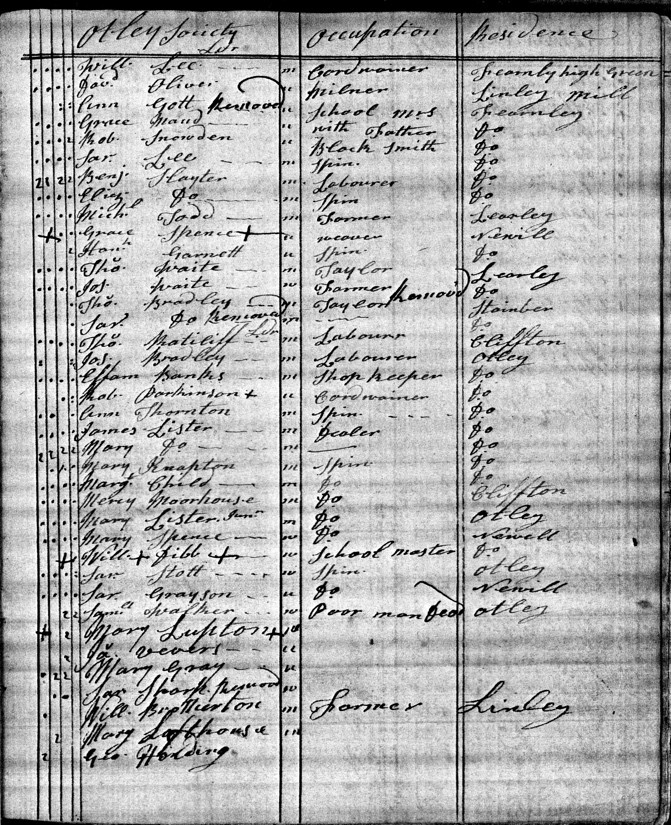 Otley Society Occupation Residence
Ldr
Will. Lee m Cordwainer Fearnly high Green
Dav.d Oliver m Milner Linley Mill
Ann Gott Removed u School Mrs Fearnley
Grace Maud u with Father Do
Rob. Snowden u Black Smith Do
Sar. Lee m Spin. Do
Benj. Slayter m Labourer Do
Eliz. Do m Spin Do
Mich.l Todd m Farmer Learley
+ Grace Spence + u weaver Newill
Han.h Garnett u Spin Do
Tho. Waite m Taylor Learley
Jos. Waite w Farmer Removd Do
Tho. Bradley Taylor Stainber
Sar. Do Removed m Do
Ldr
Tho. Ratcliff m Labourr Cliffton
Jos. Bradley m Labourer Otley
Effam Banks m Shop keeper Do
Rob. Parkinson + u Cordwainer Do
Ann Thornton m Spin Do
James Lister m Dealer Do
Mary Do m Do
Mary Knapton m Spin Do
Marg.t Child m Do Do
Mercy Moorhouse m Do Cliffton
Mary Lister Junr m Do Otley
Mary Spence w Do Newill
+ Will + Dibb + w School master Do
Sar. Stott w Spin Otley
Sar. Grayson u Do Newill
Sam.ll Walker w Poor man Dead Otley
+ Mary Lupton + w
Vevers u
Mary Gray u
Sar Sharp Removd w
Will. Brotherton m Farmer Linley
Mary Lofthouse m
Geo. Harding